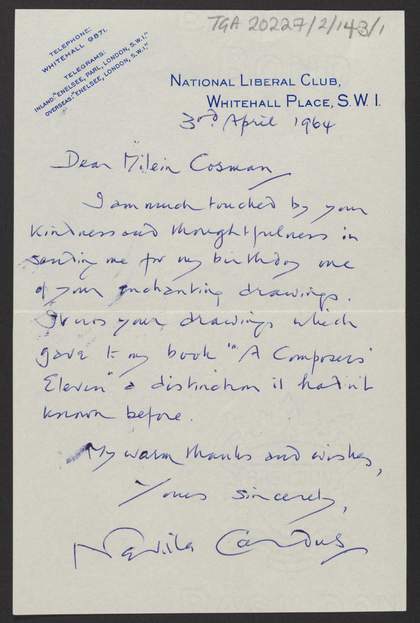 TGA 20227/2/143/1
TELEPHONE:
WHITEHALL 9871.
TELEGRAMS:
INLAND: "ENELSEE, PARL, LONDON, S.W.1."
OVERSEAS: "ENELSEE, LONDON, S.W.1."
NATIONAL LIBERAL CLUB,
WHITEHALL PLACE, S.W.1.
3rd April 1964
Dear Milein Cosman
I am much touched by your
kindness and thoughtfulness in
sending me for my birthday one
of your enchanting drawings.
It was your drawings which
gave to my book "A Composers'
Eleven" a distinction it hadn't
known before.
My warm thanks and wishes,
Yours sincerely,
Neville Cardus